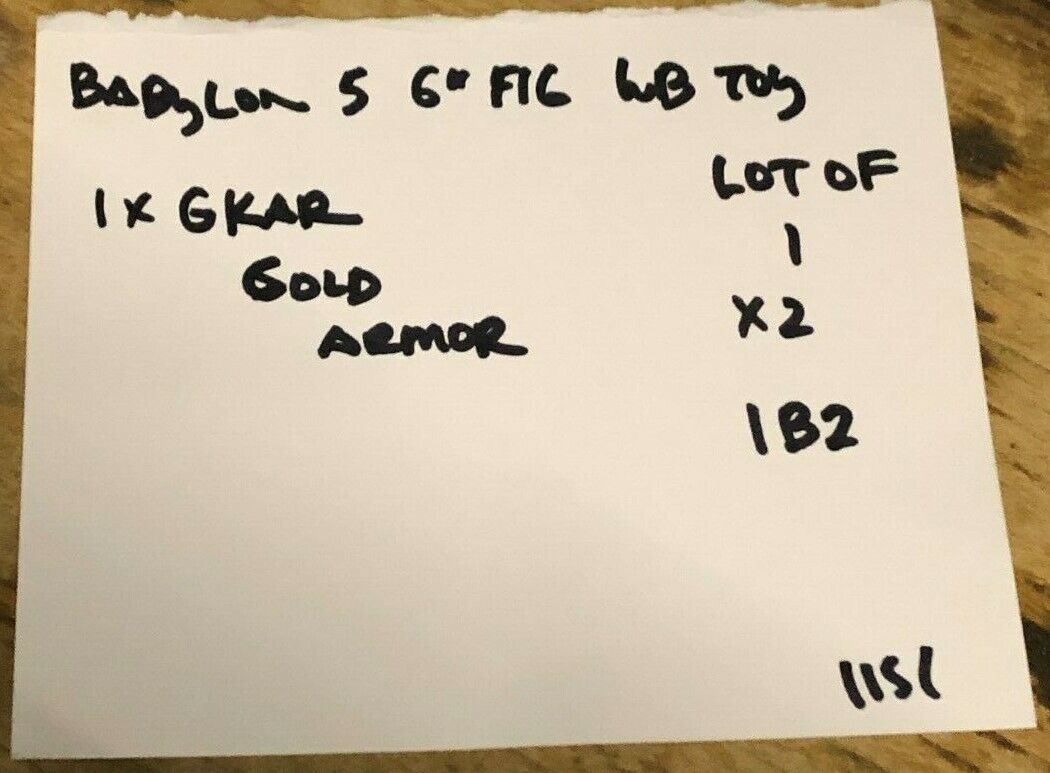 BABYLON 5 6" FIG WB TOY
LOT OF
1 X GKAR
1
GOLD
X2
ARMOR
1B2
1151